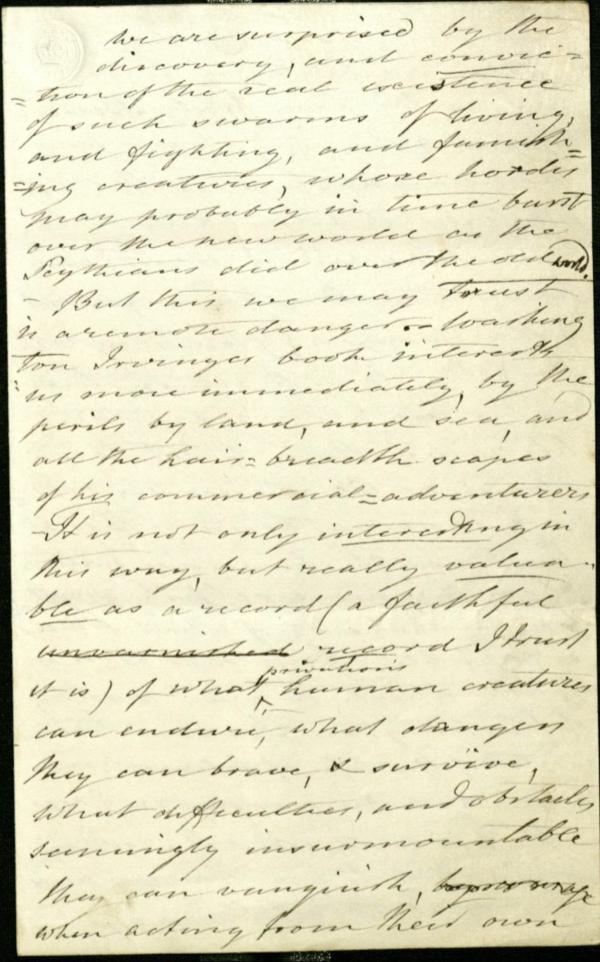 we are surprised by the
discovery, and convic=
=tion of the real existence
of such swarms of living,
and fighting, and famish=
=ing creatures, whose hordes
may probably in time burst
over the new world as the
Scythians did over the old world.
– But this we may trust
is a remote danger. – Washing
ton Irvinges book interests
us more immediately, by the
perils by land, and sea, and
all the hair=breadth scapes
of his commercial=adventurers
– It is not only interesting in
this way, but really valua-
ble as a record (a faithful
unvarnished record I trust
it is) of what privations human creatures
can endure, what dangers
they can brave, & survive,
what difficulties, and obstacles
seemingly insurmountable
they can vanquish, by courage
when acting from their own